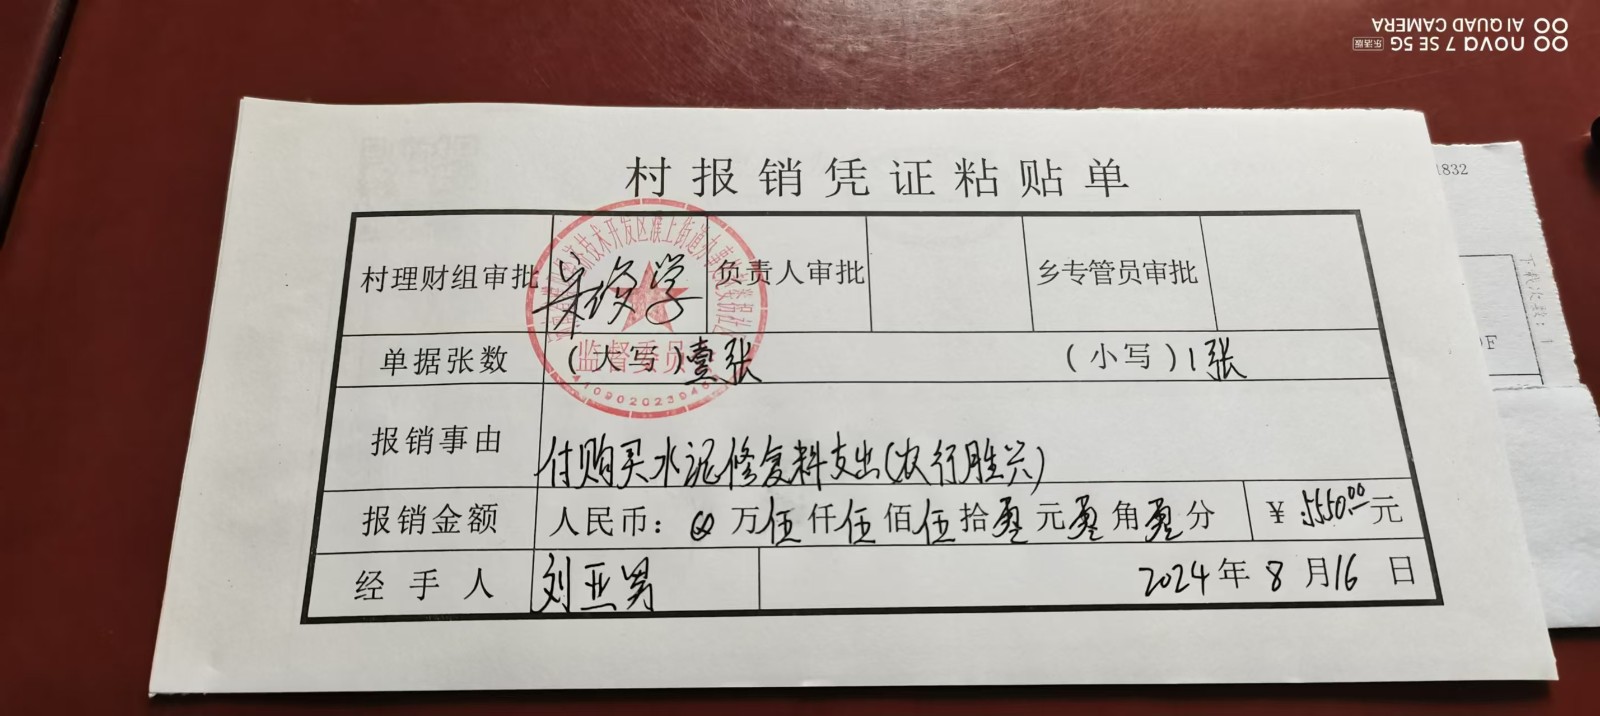 村报销凭证粘贴单
村理财组审批 负责人审批 乡专管员审批
单据张数 (大写)壹张 (小写)1张
报销事由 付购买水泥修复料支出(农行胜兴)
报销金额 人民币: 万伍仟伍佰伍拾零元零角零分 ¥5550.00元
经手人 刘亚男 2024年8月16日
监督委员
1832
下载次数:1
nova 7 SE 5G 乐活版
AI QUAD CAMERA